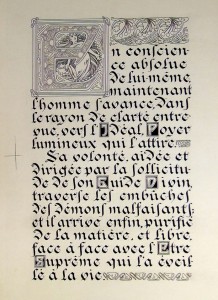 En conscience
absolue
de lui-même,
maintenant
l'homme s'avance, dans
le rayon de clarté entre-
vue, vers l'Idéal, Foyer
lumineux qui l'attire.
Sa volonté, aidée et
dirigée par la sollicitu-
de de son Guide Divin,
traverse les embûches
des démons malfaisants;
et il arrive enfin, purifié
de la matière, et libre,
face à face avec l'Être
Suprême qui l'a éveil-
lé à la vie